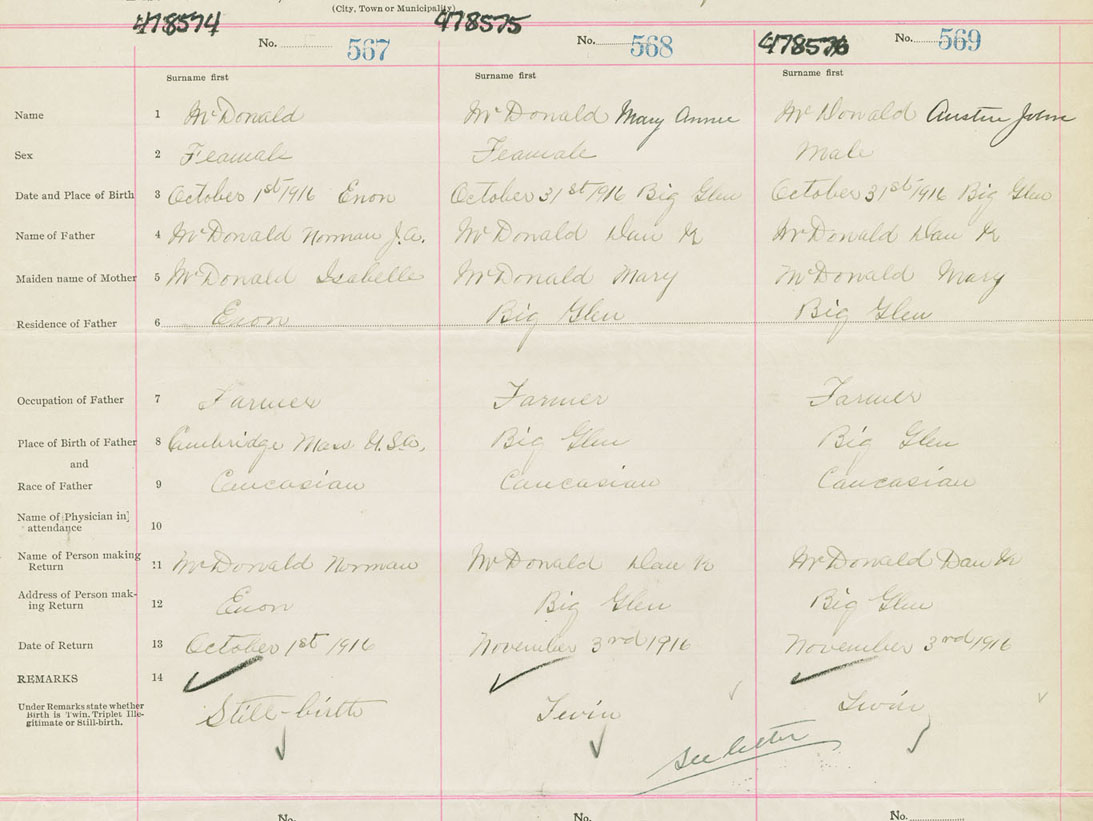 (City, Town or Municipality)
478574 478575 478576
No. 567 No. 568 No. 569
Surname first Surname first Surname first
Name 1 McDonald McDonald Mary Annie McDonald Austin John
Sex 2 Feamale Feamale Male
Date and Place of Birth 3 October 1st 1916 Enon October 31st 1916 Big Glen October 31st 1916 Big Glen
Name of Father 4 McDonald Norman J.A. McDonald Dan K McDonald Dan K
Maiden name of Mother 5 McDonald Isabelle McDonald Mary McDonald Mary
Residence of Father 6 Enon Big Glen Big Glen
Occupation of Father 7 Farmer Farmer Farmer
Place of Birth of Father 8 Cambridge Mass U.S.A. Big Glen Big Glen
and
Race of Father 9 Caucasian Caucasian Caucasian
Name of Physician in
attendance 10
Name of Person making
Return 11 McDonald Norman McDonald Dan K McDonald Dan K
Address of Person mak-
ing Return 12 Enon Big Glen Big Glen
Date of Return 13 October 1st 1916 November 3rd 1916 November 3rd 1916
REMARKS 14
Under Remarks state whether
Birth is Twin, Triplet Ille-
gitimate or Still-birth.
Still-birth Twin Twin
See letter
No. No. No.